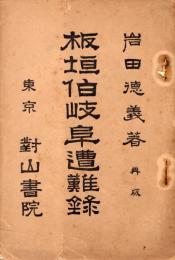 岩田徳義著
再版
板垣伯岐阜遭難録
東京
對山書院